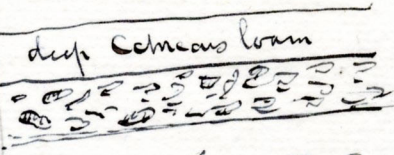 deep Calcareous loam